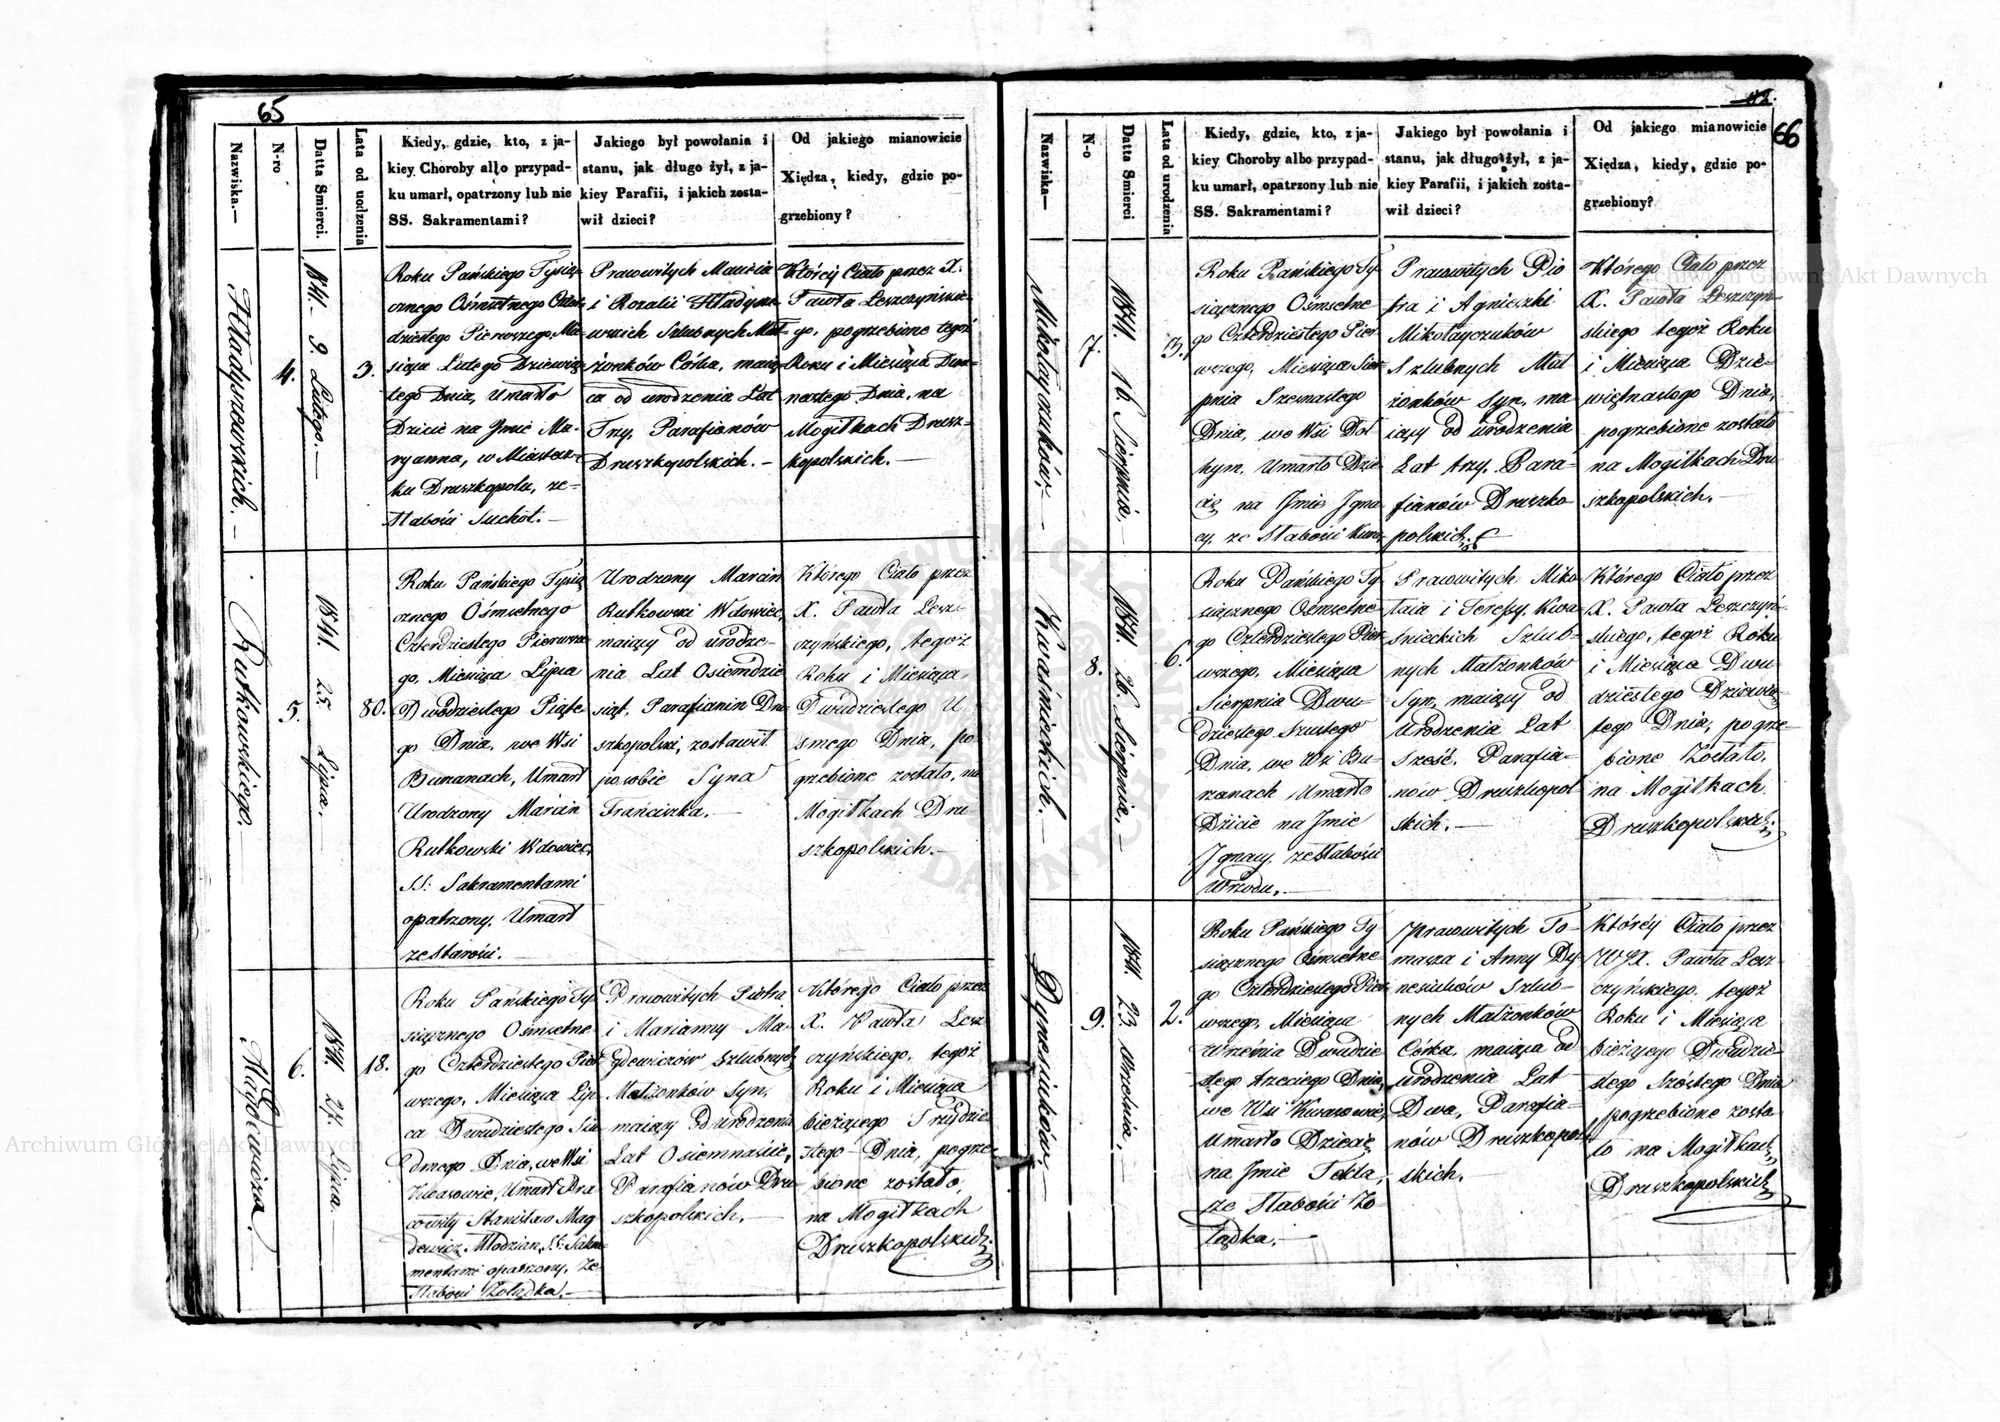 65
Nazwiska.—
N-ro
Datta Smierci.
Lata od urodzenia
Kiedy, gdzie, kto, z ja-
kiey Choroby allo przypad-
ku umarł, opatrzony lub nie
SS. Sakramentami?
Jakiego był powołania i
stanu, jak długo żył, z ja-
kiey Parafii, i jakich zosta-
wił dzieci?
Od jakiego mianowicie
Xiędza, kiedy, gdzie po-
grzebiony?
Hładyszowskich.—
4.
1841. 9. Lutego.—
3.
Roku Pańskiego Tysią-
cznego Ośmsetnego Czter-
dziestego Pierwszego, Mie-
siąca Lutego Dziewią-
tego Dnia, Umarło
Dziecie na Jmie Ma-
ryanna, w Miastecz-
ku Druszkopolu, ze
Słabości Suchot.—
Prawowitych Macieia
i Rozalii Hładyszo-
wskich Szlubnych Mał-
żonków Córka, maią-
ca od urodzenia Lat
Trzy, Parafianów
Druszkopolskich.—
Któréy Ciało przez X.
Pawła Leszczyńskie-
go, pogrzebione tegoż
Roku i Miesiąca Dwu-
nastego Dnia, na
Mogiłkach Drusz-
kopolskich.—
Rutkowskiego.
5.
1841. 25. Lipca.
80.
Roku Pańskiego Tysią-
cznego Ośmsetnego
Czterdziestego Pierwsze-
go, Miesiąca Lipca
Dwudziestego Piąte-
go Dnia, we Wsi
Buzanach, Umarł
Urodzony Marcin
Rutkowski Wdowiec,
SS: Sakramentami
opatrzony, Umarł
ze Starości.
Urodzony Marcin
Rutkowski Wdowiec,
maiący od urodze-
nia Lat Osiemdzie-
siąt, Parafianin Dru-
szkopolski, zostawił
po sobie Syna
Franciszka.—
Którego Ciało przez
X. Pawła Lesz-
czyńskiego, tegoż
Roku i Miesiąca
Dwudziestego U
smego Dnia, po-
grzebione zostało, na
Mogiłkach Dru
szkopolskich.—
Magdewicza.
6.
1841. 27. Lipca.—
18.
Roku Pańskiego Ty-
siącznego Ośmsetne
go Czterdziestego Pier
wszego, Miesiąca Lip
ca Dwudziestego Sió
dmego Dnia, we Wsi
Kwasowie, Umarł Pra
wowity Stanisław Mag
dewicz Młodzian, SS: Sakra
mentami opatrzony, ze
Słabości Żołądka.—
Prawowitych Piotra
i Marianny Ma-
gdewiczów Szlubnych
Małżonków Syn,
maiący Od urodzenia
Lat Osiemnaście,
Parafianów Dru
szkopolskich.—
Którego Ciało przez
X. Pawła Lesz
czyńskiego, tegoż
Roku i Miesiąca
bieżącego Trzydzie-
stego Dnia, pogrze-
bione zostało,
na Mogiłkach
Druszkopolskich.
42.
66
Nazwiska—
N-o
Datta Smierci
Lata od urodzenia
Kiedy, gdzie, kto, z ja-
kiey Choroby albo przypad-
ku umarł, opatrzony lub nie
SS. Sakramentami?
Jakiego był powołania i
stanu, jak długo żył, z ja-
kiey Parafii, i jakich zosta-
wił dzieci?
Od jakiego mianowicie
Xiędza, kiedy, gdzie po-
grzebiony?
Mikołayczuków.—
7.
1841. 16. Sierpnia.—
3.
Roku Pańskiego Ty
siącznego Ośmsetne
go Czterdziestego Pier
wszego, Miesiąca Sier
pnia Szesnastego
Dnia, we Wsi Doł
hym, Umarło Dzie
cię na Jmie Igna
cy, ze Słabości
Prawowitych Pio
tra i Agnieszki
Mikołayczuków
Szlubnych Mał
żonków Syn, ma
iący od urodzenia
Lat trzy, Para-
fianów Druszko
polskich.
Którego Ciało przez
X. Pawła Leszczyń-
skiego tegoż Roku
i Miesiąca Dzie-
więtnastego Dnia,
pogrzebione zostało
na Mogiłkach Dru
szkopolskich.—
Kwaśnieckich.—
8.
1841. 26. Sierpnia.—
6.
Roku Pańskiego Ty-
siącznego Ośmsetne
go Czterdziestego Pier
wszego, Miesiąca
Sierpnia Dwu-
dziestego Szustego
Dnia, we Wsi Bu-
zanach Umarło
Dziecie na Jmie
Ignacy, ze Słabości
Wrzodu.—
Prawowitych Miko
łaia i Teressy Kwa-
śnieckich Szlub-
nych Małżonków
Syn, maiący od
Urodzenia Lat
Sześć, Parafia-
nów Druszkopol
skich.—
Którego Ciało przez
X. Pawła Leszczyń-
skiego, tegoż Roku
i Miesiąca Dwu
dziestego Dziewią-
tego Dnia, pogrze-
bione Zostało,
na Mogiłkach
Druszkopolskich.
Dynesiuków.—
9.
1841. 23. Wrzesnia.—
2.
Roku Pańskiego Ty
siącznego Ośmsetne
go Czterdziestego Pier
wszego, Miesiąca
Wrzesnia Dwudzie
stego trzeciego Dnia,
we Wsi Kwasowie,
Umarło Dziecię
na Jmie Tekla,
ze Słabości Żo
łądka.—
Prawowitych To-
masza i Anny Dy
nesiuków Szlub-
nych Małżonków
Córka, maiąca od
urodzenia Lat
Dwa, Parafia-
nów Druszkopol
skich.—
Któréy Ciało przez
WJX. Pawła Lesz-
czyńskiego, tegoż
Roku i Miesiąca
bieżącego Dwudzie-
stego Szóstego Dnia
pogrzebione zosta
ło na Mogiłkach
Druszkopolskich
Archiwum Główne Akt Dawnych
Archiwum Główne Akt Dawnych